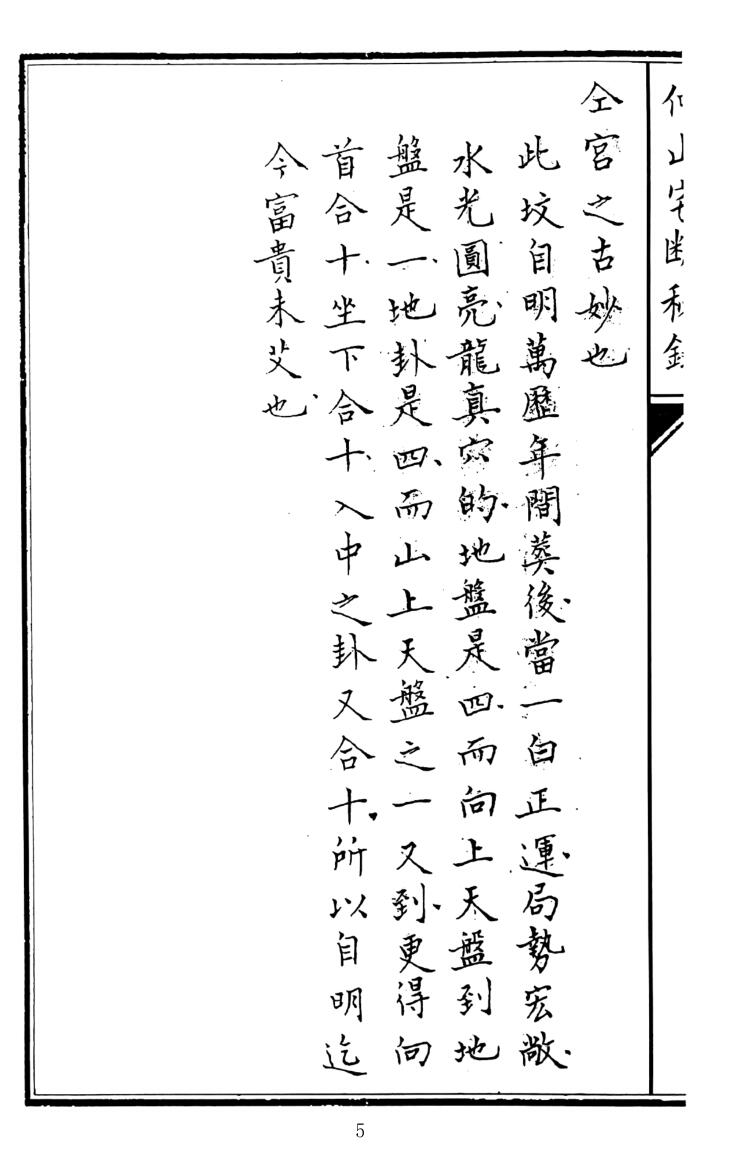 仝宮之古妙也
此坟自明萬歷年間葬後當一白正運局勢宏敞
水光圓亮龍真穴的地盤是四而向上天盤到地
盤是一地卦是四而山上天盤之一又到更得向
首合十坐下合十入中之卦又合十所以自明迄
今富貴未艾也
5